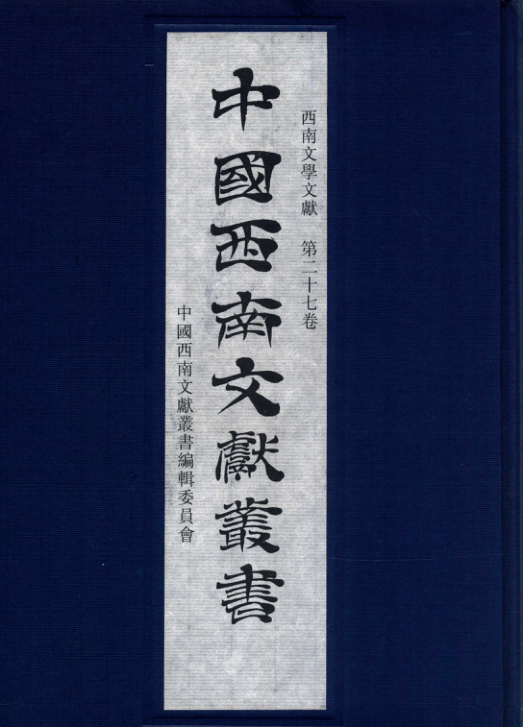 西南文學文獻 第二十七卷
中國西南文獻叢書
中國西南文獻叢書編輯委員會